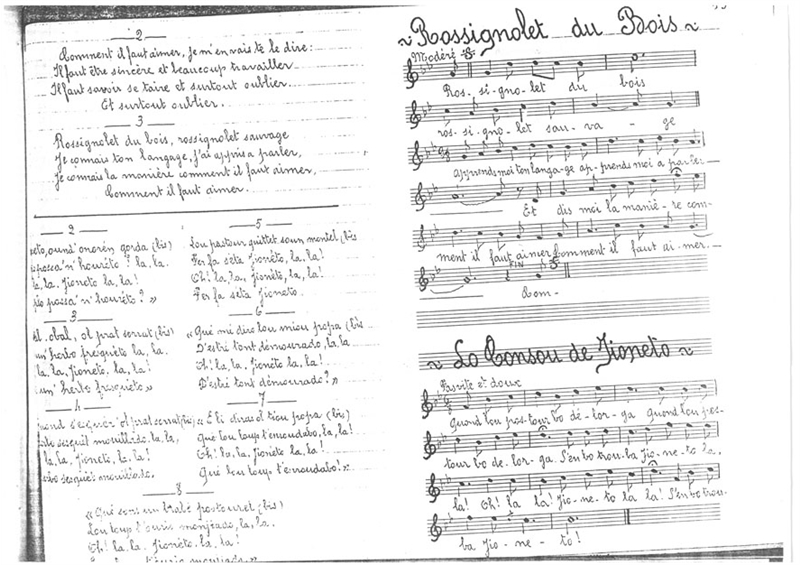 2
Comment il faut aimer, je m'en vais te le dire:
Il faut être sincère et beaucoup travailler
Il faut savoir se taire et surtout oublier.
Et surtout oublier.
3
Rossignolet du bois, rossignolet sauvage
Je connais ton langage, j'ai appris à parler,
Je connais la manière comment il faut aimer,
Comment il faut aimer.
2
gorda (bis)
la, la.
la, la, Jioneto la, la!
3
prat serrat (bis)
un' herbo fresquieto la, la.
la, la, Jioneto, la, la!
un' herbo fresquieto.»
4
la, la, Jioneto, la, la!
5
Lou pastour quittet soun montel (bis
Per fa seta Jioneto, la, la!
Oh! la, la, Jioneto, la, la!
Per fa seta Jioneto.
6
«Qué mi diro lou miou popa (bis
D'estré tont démourado, la, la
Oh! la, la, Jioneto la, la!
D'estré tont démourado?»
7
tiou popa (bis)
Qué lou loup t'enroudabo, la, la!
Oh! la, la, Jioneto la, la!
Qué lou loup t'enroudabo!».
8
«Qué sont un brabé postourel (bis)
Lou loup monjiado, la, la.
Oh! la, la, Jioneto, la, la!
~ Rossignolet du Bois ~
Modéré
Ros- si- gno- let du bois
ros- si- gno- let sau- va - ge
apprends moi ton langa-ge ap-prends moi a parler
Et dis moi la maniè- re com-
ment il faut aimer Comment il faut aimer.
FIN
Com-
~ Lo Consou de Jioneto ~
doux
Quond lou pos-tour bo dé-lor-ga Quond lou pos-
tour bo de-lor-ga. S'en bo trou-ba Jio-ne-to la.
la! Oh! la la! Jio-ne-to la la! S'en bo trou-
ba Jio - ne - to!